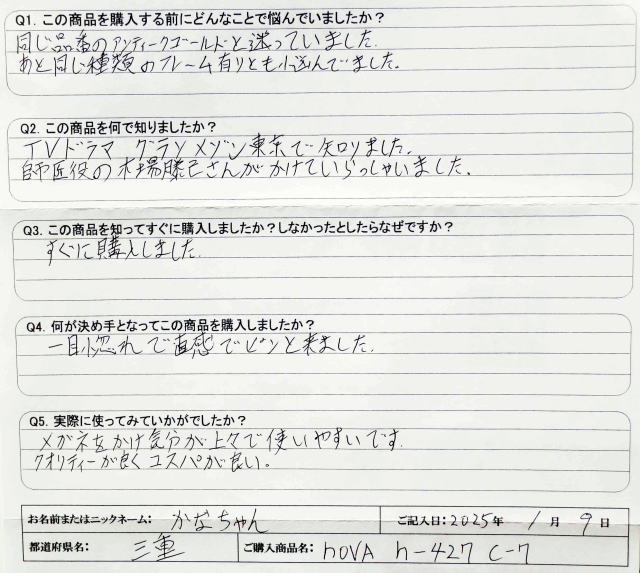 Q1. この商品を購入する前にどんなことで悩んでいましたか？
同じ品番のアンティークゴールドと迷っていました.
あと同じ種類のフレーム有りとも悩んでました。
Q2. この商品を何で知りましたか？
TVドラマ グランメゾン東京で知りました.
師匠役の木場勝己さんがかけていらっしゃいました.
Q3. この商品を知ってすぐに購入しましたか？しなかったとしたらなぜですか？
すぐに購入しました.
Q4. 何が決め手となってこの商品を購入しましたか？
一目惚れで直感でピンと来ました.
Q5. 実際に使ってみていかがでしたか？
メガネをかけ気分が上々で使いやすいです.
クオリティーが良くコスパが良い。
お名前またはニックネーム： かなちゃん ご記入日：2025年 1月 9日
都道府県名： 三重 ご購入商品名： nOVA n-427 C-7